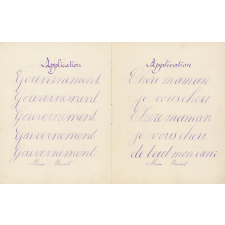 Application
Gouvernement
Gouvernement
Gouvernement
Gouvernement
Gouvernement
Application
Chère maman
je vous chéri
Chère maman
je vous chéri
de tout mon cœur